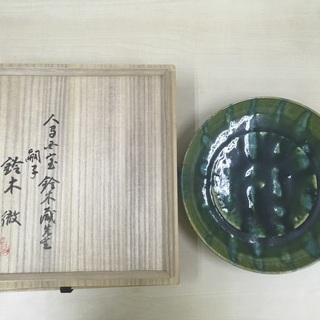 人間国宝 鈴木藏先生
嗣子
鈴木 徹